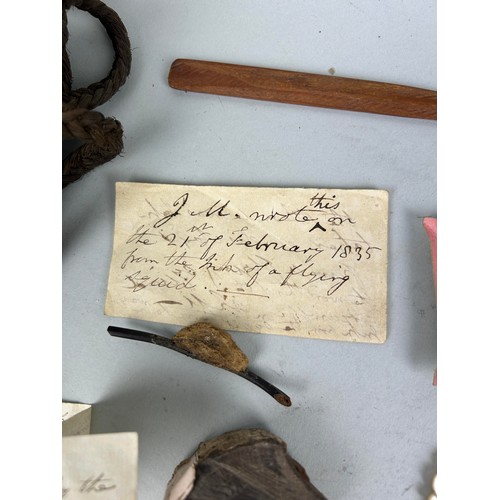 J. M. wrote this on
the 21st of February 1835
from the Ink of a flying
squid.
the